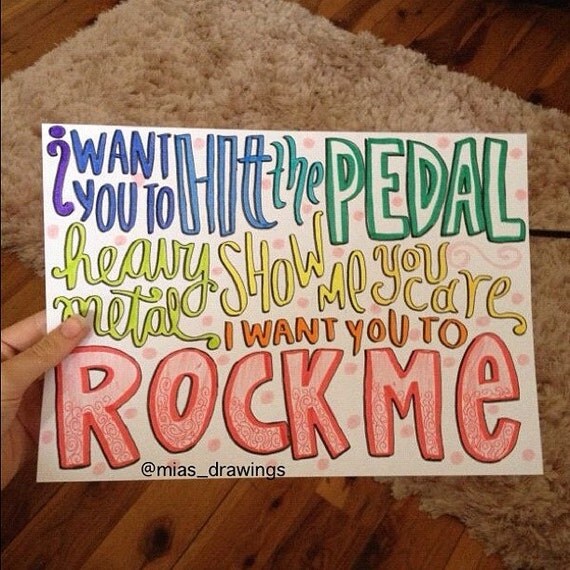 i WANT YOU TO HIt the PEDAL
heavy metal SHOW ME you care
I WANT YOU TO
ROCK Me
@mias_drawings